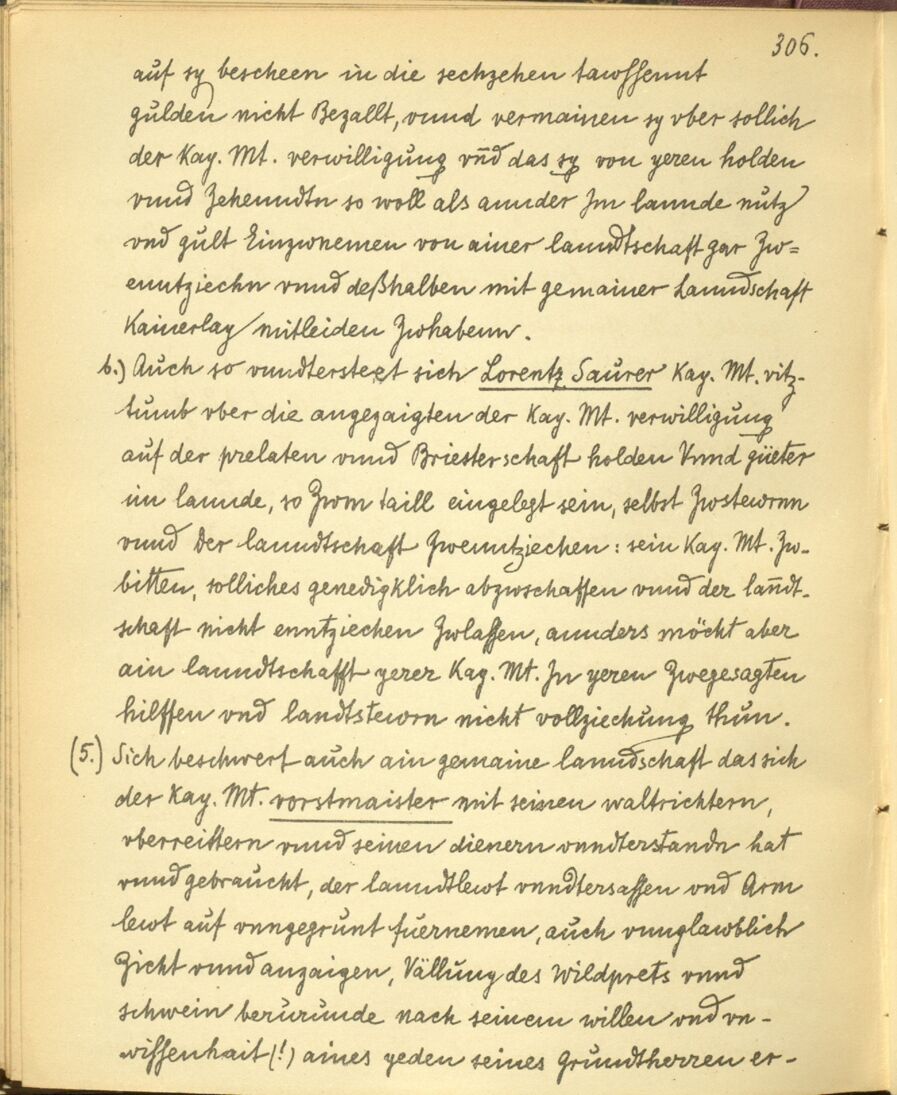 306.
auf sy bescheen in die sechzehen tawssennt
gulden nicht Bezallt, vnnd vermainen sy vber sollich
der Kay. Mt. verwilligung vnd das sy von yeren holden
vnnd Zehenndtn so woll als annder Im lannde nutz
vnd gult Einzwnemen von ainer lanndtschaft gar Zw=
enntziechn vnnd deßhalben mit gemainer Lanndschaft
Kainerlay mitleiden Zwhabenn.
b.) Auch so vnndtersteet sich Lorentz Saurer Kay. Mt. vitz-
tumb vber die angezaigten der Kay. Mt. verwilligung
auf der prelaten vnnd Briesterschaft holden Vnnd güeter
im lannde, so Zwm taill eingelegt sein, selbst Zwstewrnn
vnnd der lanndtschaft Zwenntziechen: sein Kay. Mt. Zw-
bitten, solliches genedigklich abzwschaffen vnnd der lanndt-
schaft nicht enntziechen Zwlassen, annders möcht aber
ain lanndtschafft yerer Kay. Mt. In yeren Zwegesagten
hilffen vnd landtstewrn nicht vollziechung thun.
(5.) Sich beschwert auch ain gemaine lanndschaft das sich
der Kay. Mt. vorstmaister mit seinen waltrichtern,
vberreittern vnnd seinen dienern vnndterstandn hat
vnnd gebraucht, der lanndtlewt vnndtersassen vnd Arm
lewt auf vnngegrunt fuernemen, auch vnnglawblich
Zicht vnnd anzaigen, Vällung des Wildprets vnnd
schwein berurunde nach seinem willen vnd vn-
wissenhait (!) aines yeden seines Grundtherren er-